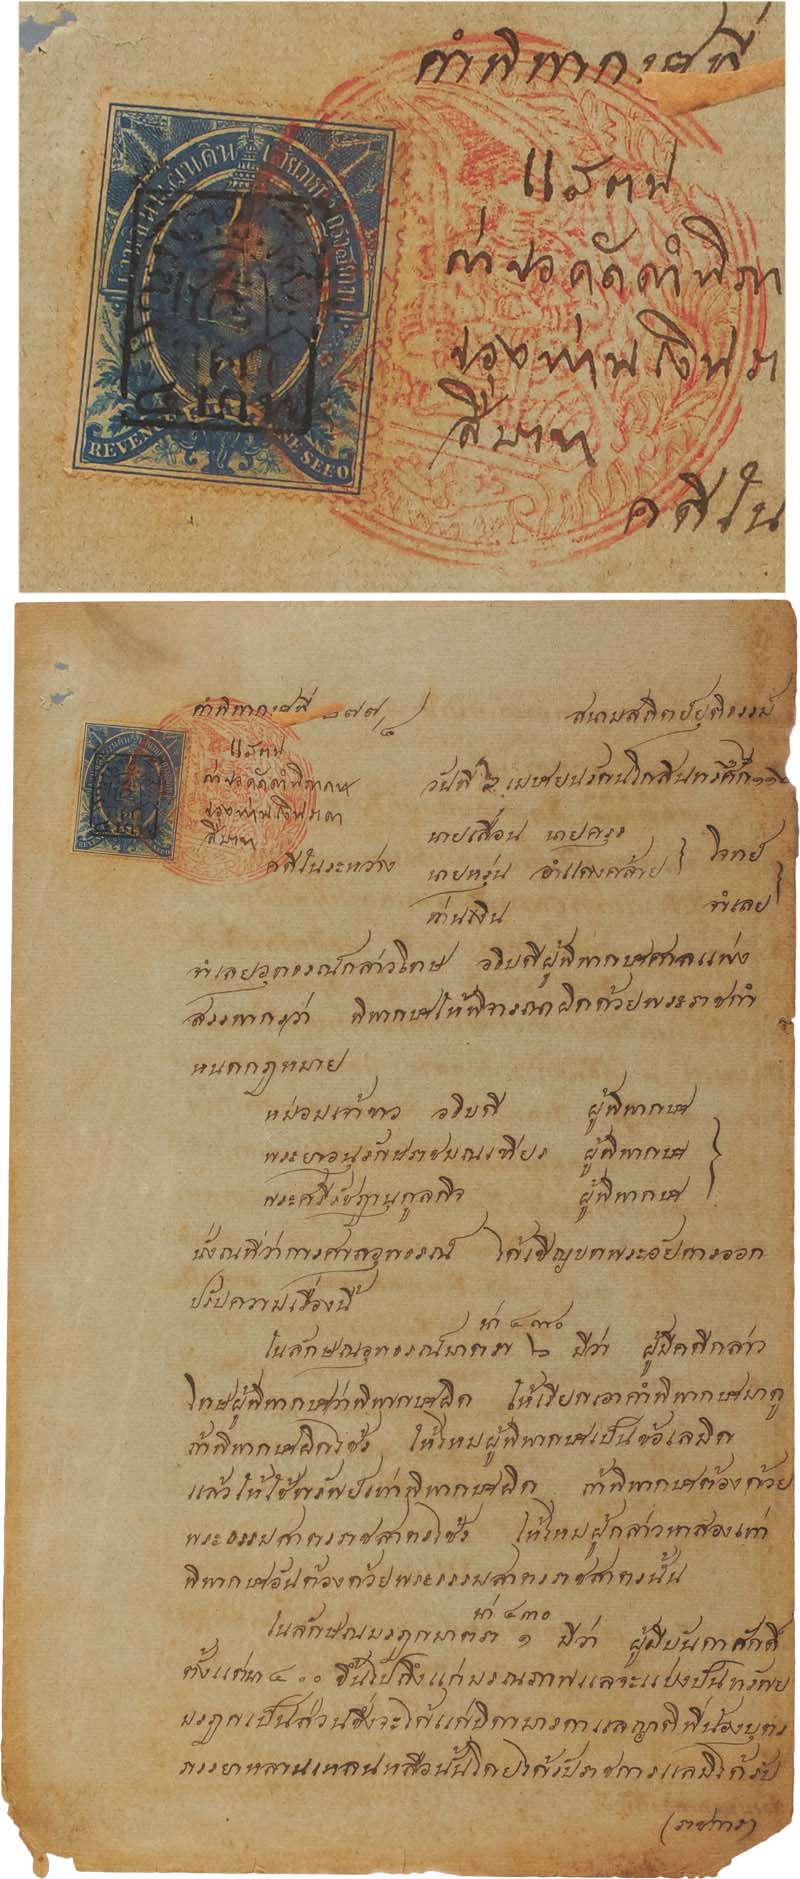 คำพิพากษที่
แสตมป์
ค่าขอคัดคำพิภา
ของท่านเงินรา
สี่บาท
คดีใน
REVENUE ONE SEEO
คำพิพากษที่ ๒๗๗
สนามสถิตย์ยุติธรรม
แสตมป์
ค่าขอคัดคำพิภากษ
ของท่านเงินราคา
สี่บาท
วันที่ ๖ เมษายนรัตนโกสินทรศก
คดีในระหว่าง
นายเลื่อน นายครุธ
นายหรุ่น อำแดงคล้าย } โจทย์
ท่านเงิน จำเลย
จำเลยอุทธรณ์กล่าวโทษ อธิบดีผู้พิพากษศาลแพ่ง
สรรพากรว่า พิพากษให้พิจารณาผิดด้วยพระราชกำ
หนดกฎหมาย
หม่อมเจ้าขาว อธิบดี ผู้พิพากษ
พระยาอนุรักษราชมณเฑียร ผู้พิพากษ
พระศรีรัษฎานุกูลกิจ ผู้พิพากษ
นั่งณที่ว่าการศาลอุทธรณ์ ได้เชิญบทพระอัยการออก
ปรับความเรื่องนี้
น่า ๔๓๐
ในลักษณอุทธรณ์มาตรา ๖ มีว่า ผู้มีคดีกล่าว
โทษผู้พิพากษว่าพิพากษผิด ให้เรียกเอาคำพิพากษมาดู
ถ้าพิพากษผิดไซ้ ให้ไหมผู้พิพากษเป็นข้อเลมิด
แล้วให้ใช้ทรัพย์เท่าพิพากษผิด ถ้าพิพากษต้องด้วย
พระธรรมสาตรราชสาตรไซ้ ให้ไหมผู้กล่าวหาสองเท่า
พิพากษอันต้องด้วยพระธรรมสาตรราชสาตรนั้น
น่า ๔๓๐
ในลักษณมรฎกมาตรา ๑ มีว่า ผู้มีบันดาศักดิ์
ตั้งแต่นา ๔๐๐ ขึ้นไปถึงแก่มรณภาพแลจะแบ่งปันทรัพย
มรฎกเป็นส่วนซึ่งจะได้แก่บิดามารดาแลญาติพี่น้องบุตร
ภรรยาหลานเหลนหลือนั้นโดยได้รับราชการแลมิได้รับ
(ราชการ)